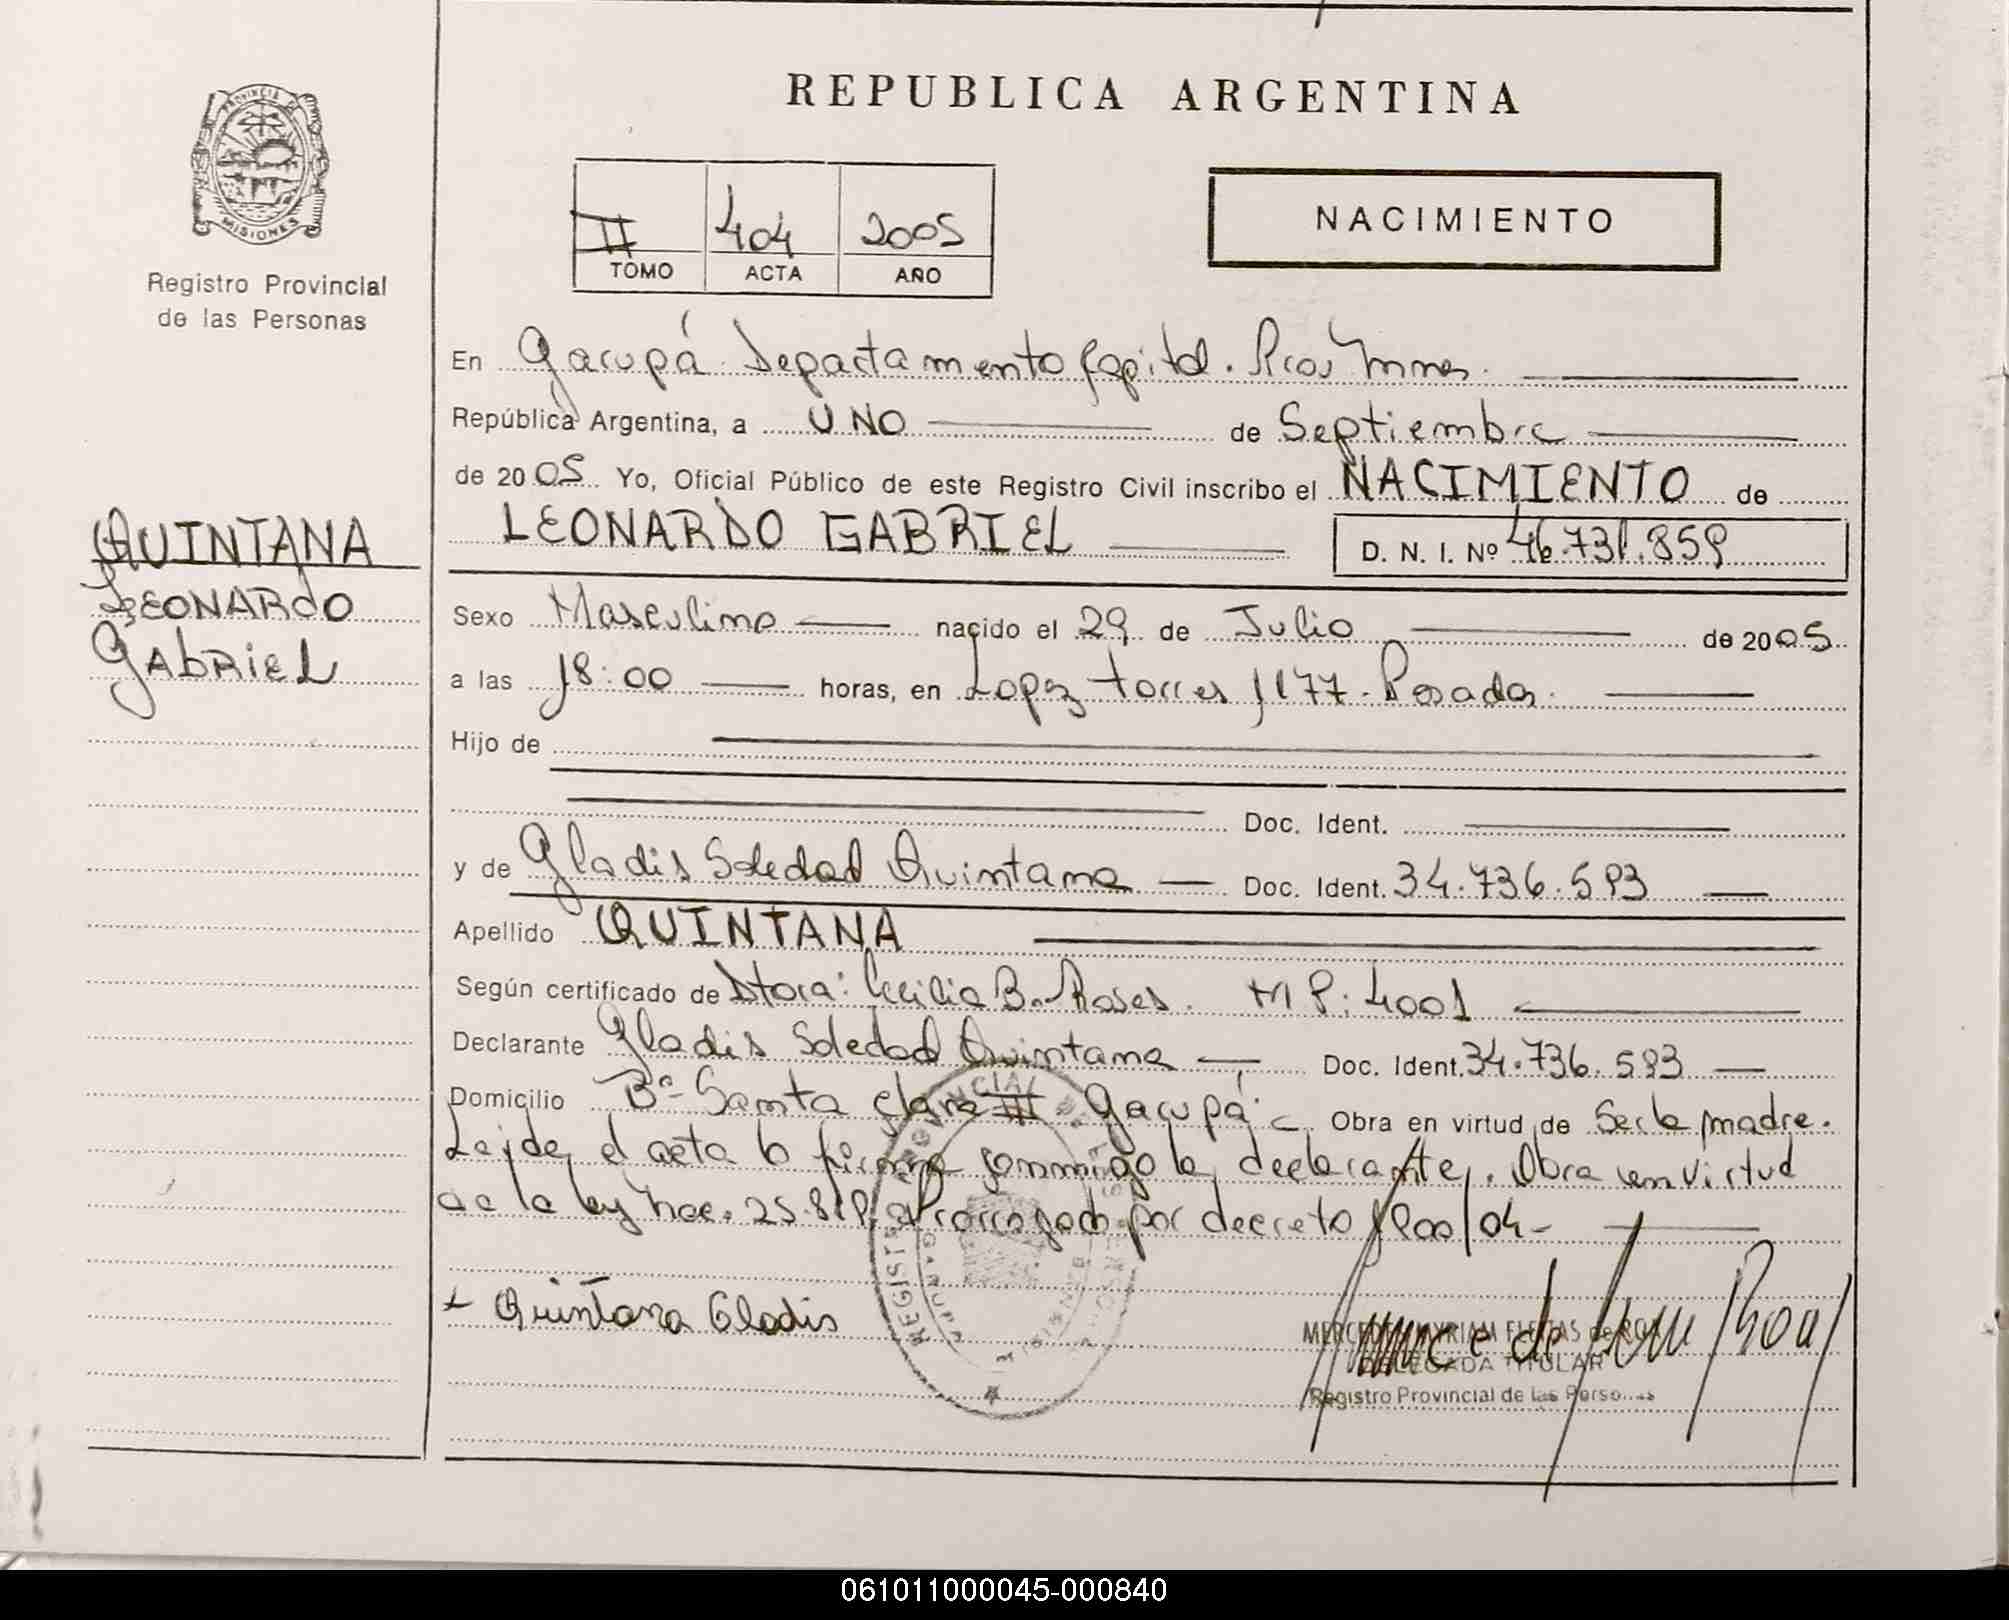 REPUBLICA ARGENTINA
PROVINCIA DE
MISIONES
Registro Provincial
de las Personas
II 404 2005
TOMO ACTA AÑO
NACIMIENTO
En Garupá Departamento Capital. Pcia. Mnes.
República Argentina, a UNO de Septiembre
de 2005 Yo, Oficial Público de este Registro Civil inscribo el NACIMIENTO de
LEONARDO GABRIEL D. N. I. Nº 46.731.859
QUINTANA
LEONARDO
GABRIEL
Sexo Masculino nacido el 29 de Julio de 2005
a las 18:00 horas, en Lopez Torres 1177. Posadas.
Hijo de
Doc. Ident.
y de Gladis Soledad Quintana Doc. Ident. 34.736.593
Apellido QUINTANA
Según certificado de Dtora: Cecilia B. Roses. MP: 4001
Declarante Gladis Soledad Quintana Doc. Ident. 34.736.593
Domicilio Bº Santa Clara III Garupá Obra en virtud de Ser la madre.
Leída el acta la firma conmigo la declarante. Obra en virtud
de la ley Nac. 25.819, Prorrogado por decreto
Quintana Gladis
MERCEDES MYRIAM FLEITAS de ROA
DELEGADA TITULAR
Registro Provincial de las Perso
061011000045-000840